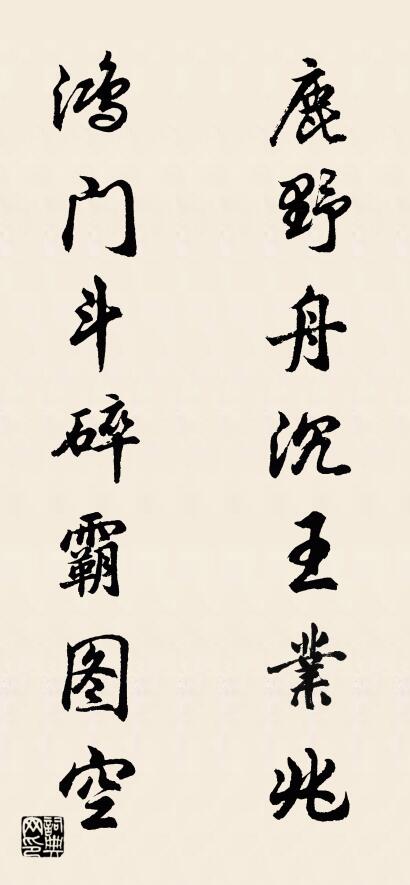 鹿野舟沉王業兆
鸿门斗碎霸图空
詞典网印